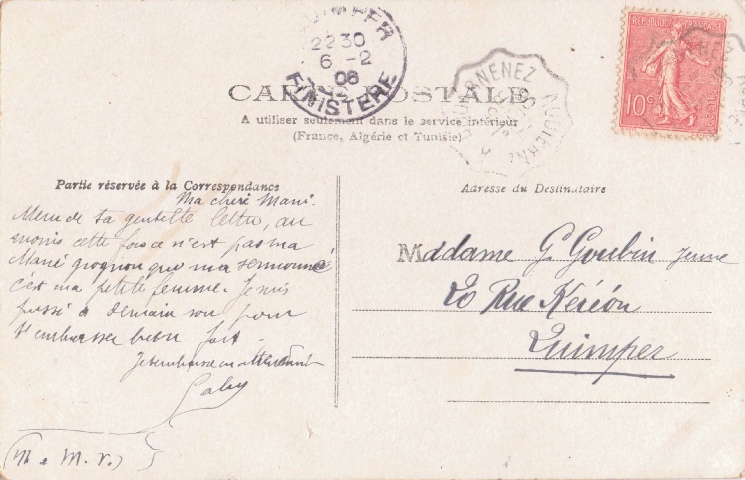 QUIMPER
22 30
6 - 2
06
FINISTERE
CARTE POSTALE
A utiliser seulement dans le service intérieur
(France, Algérie et Tunisie)
DOUARNENEZ
AUDIERNE
REPUBLIQUE FRANÇAISE
10 c
POSTES
Partie réservée à la Correspondance
Ma cheré Mani.
Merci de ta gentille lettre, au
moins cette fois ce n'est pas ma
Mané grognon que ma sermonné
c'est ma petite femme. Je suis
pressé à demain soir pour
t'embrasser bien fort.
Je t'embrasse en attendant
Gaby
Adresse du Destinataire
Madame G. Goubin Jeune
20 Rue Kéréon
Quimper